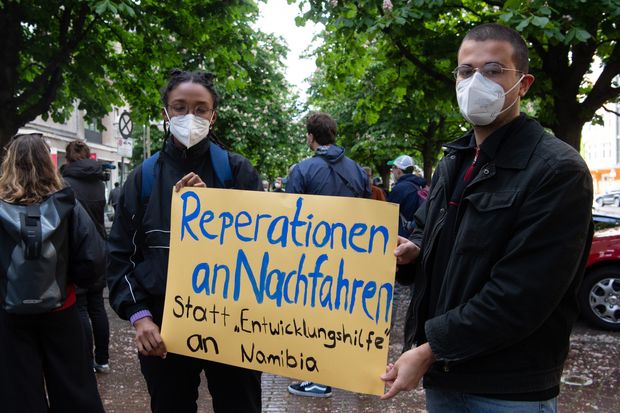 Reperationen
an Nachfahren
Statt „Entwicklungshilfe"
an Namibia